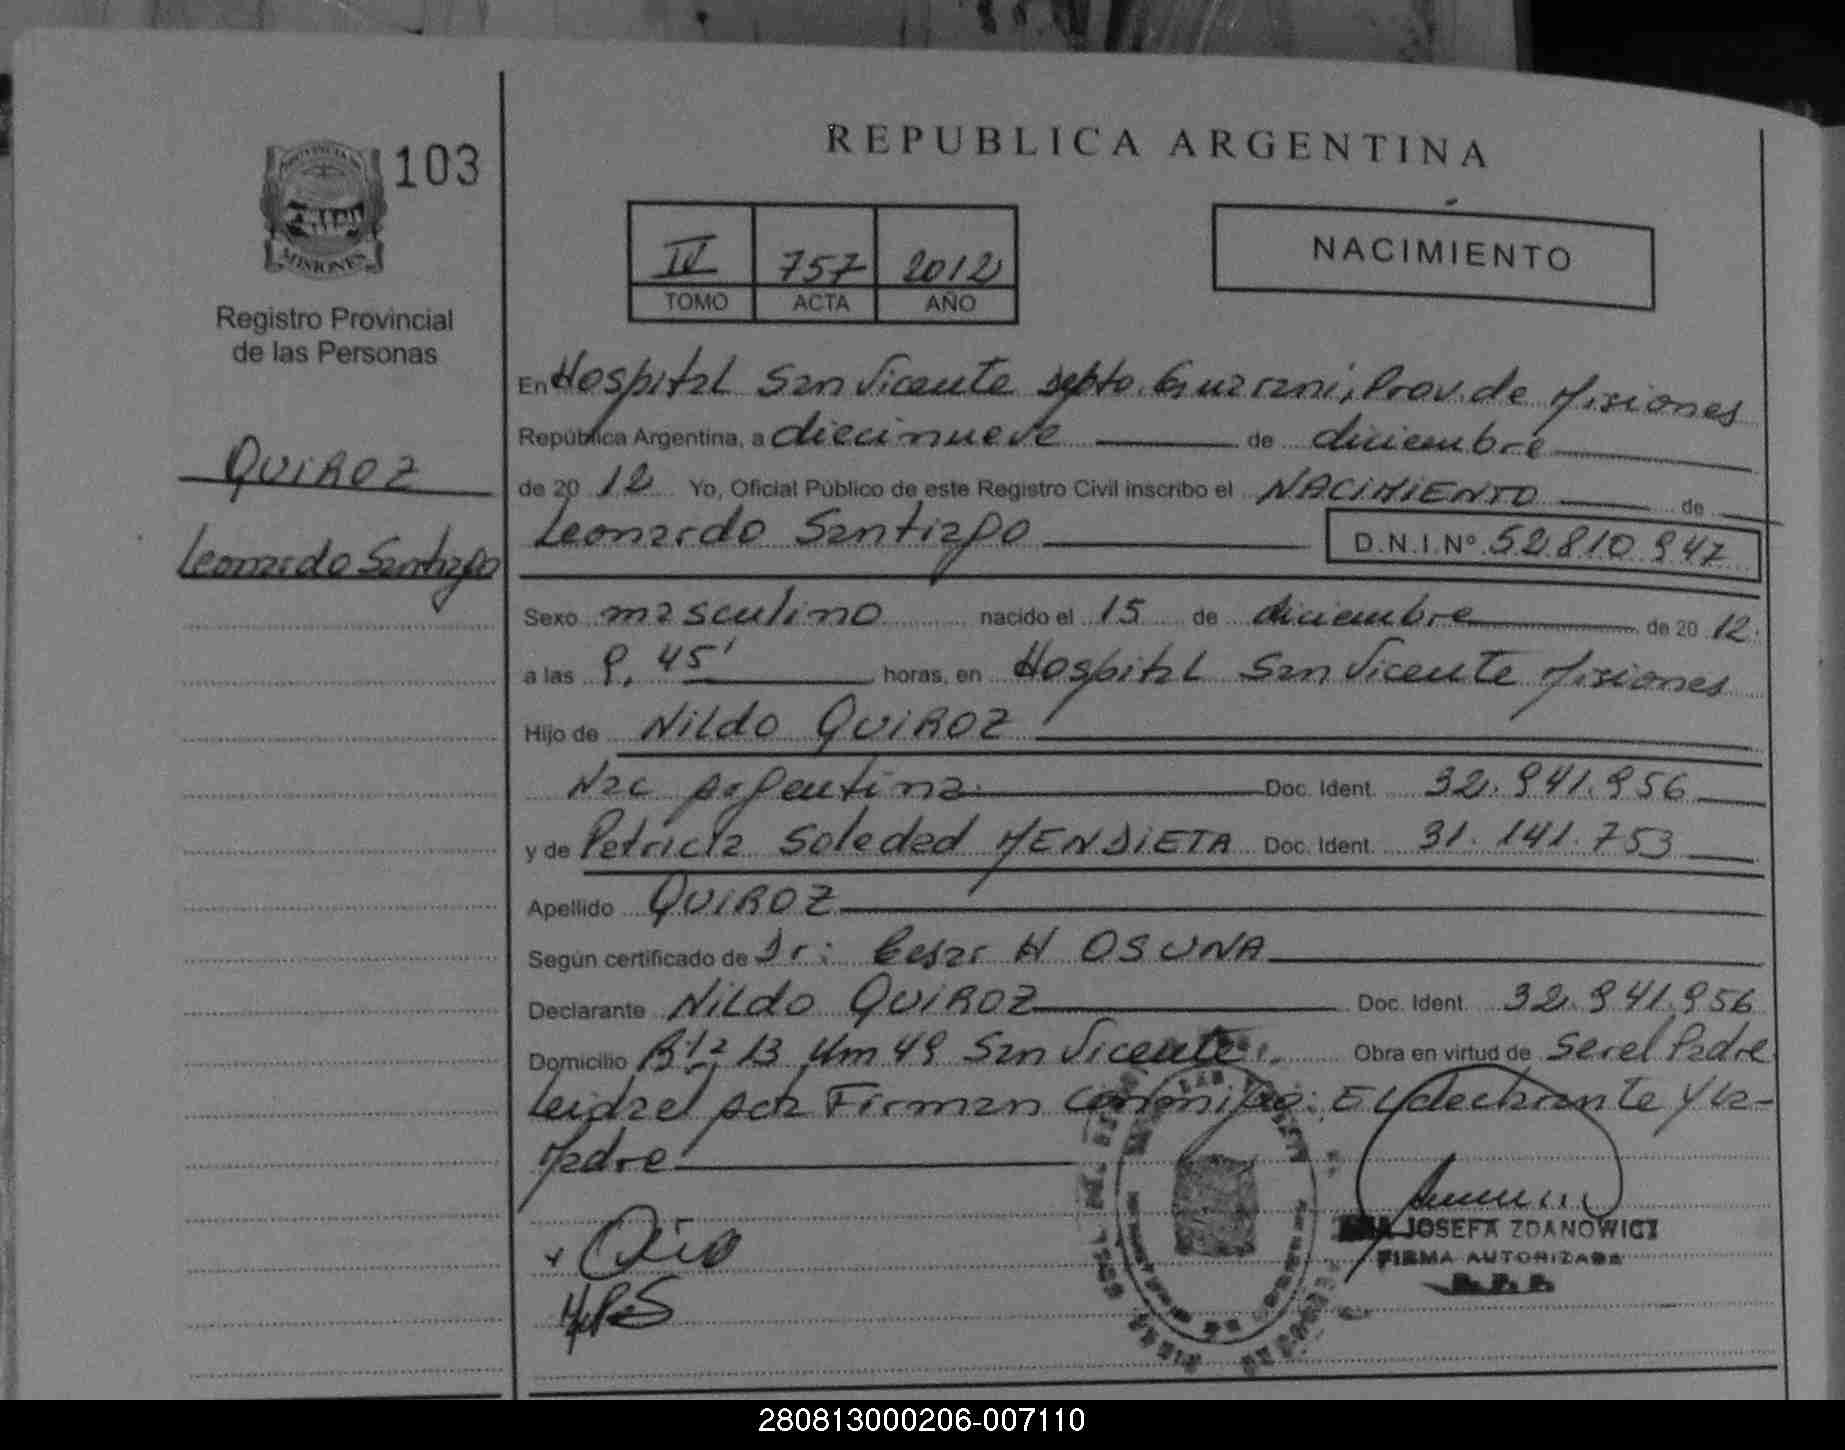 PROVINCIA DE
MISIONES
103
Registro Provincial
de las Personas
QUIROZ
Leonardo Santiago
REPUBLICA ARGENTINA
IV 757 2012
TOMO ACTA AÑO
NACIMIENTO
En Hospital San Vicente Depto. Guarani, Prov. de Misiones
República Argentina, a diecinueve de diciembre
de 20 12 Yo, Oficial Público de este Registro Civil inscribo el NACIMIENTO de
Leonardo Santiago D.N.I.Nº 52.810.947
Sexo masculino nacido el 15 de diciembre de 20 12.
a las 9,45' horas, en Hospital San Vicente Misiones
Hijo de Nildo QUIROZ
Nac argentina Doc. Ident. 32.941.956
y de Patricia Soledad MENDIETA Doc. Ident. 31.141.753
Apellido QUIROZ
Según certificado de Dr: Cesar H OSUNA
Declarante Nildo QUIROZ Doc. Ident. 32.941.956
Domicilio Rta 13 Km 49 San Vicente. Obra en virtud de Ser el Padre
Leida el acta Firman conmigo: El declarante y la-
Madre
JOSEFA ZDANOWICZ
FIRMA AUTORIZADA
R.P.P.
280813000206-007110